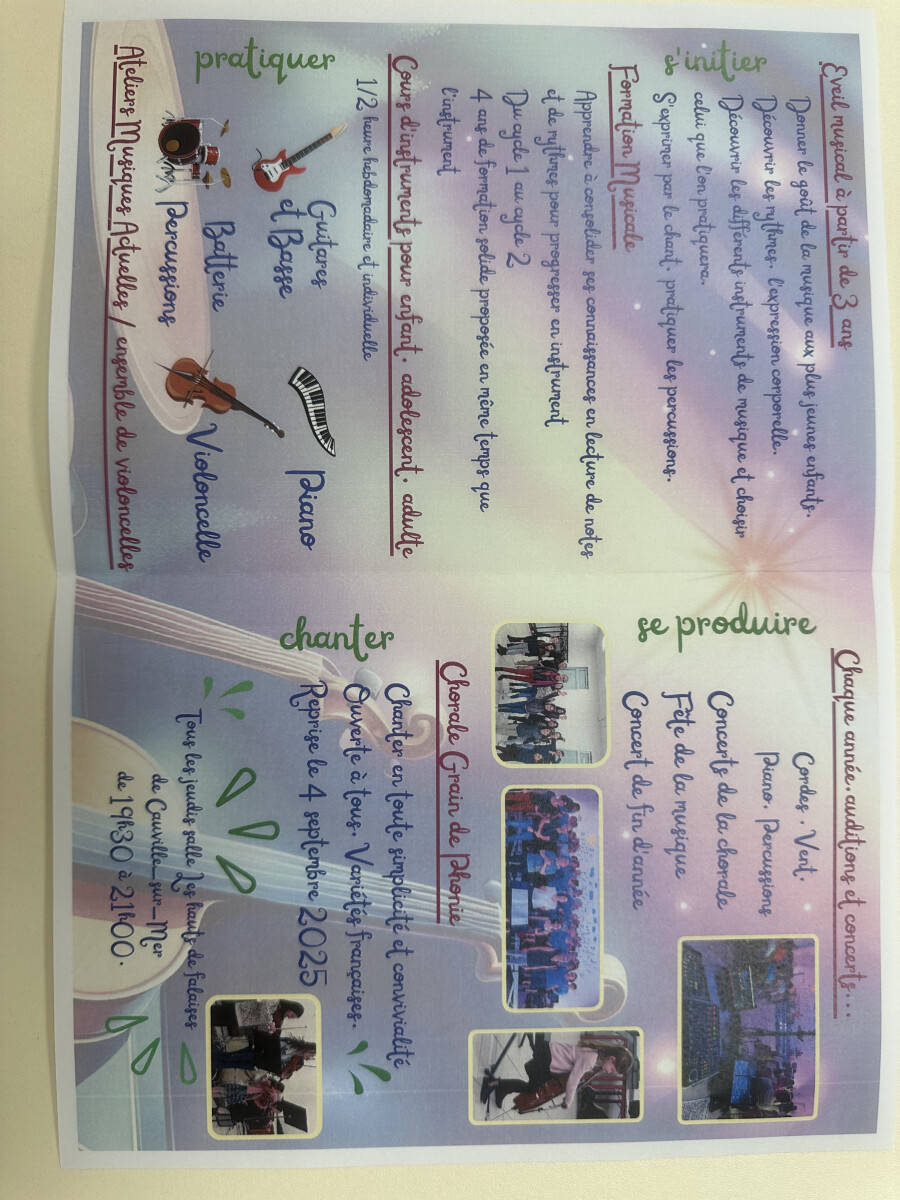 s'initier
Eveil musical à partir de 3 ans
Donner le goût de la musique aux plus jeunes enfants.
Découvrir les rythmes, l'expression corporelle.
Découvrir les différents instruments de musique et choisir
celui que l'on pratiquera.
S'exprimer par le chant, pratiquer les percussions.
Formation Musicale
Apprendre à consolider ses connaissances en lecture de notes
et de rythmes pour progresser en instrument
Du cycle 1 au cycle 2
4 ans de formation solide proposée en même temps que
l'instrument
pratiquer
Cours d'instruments pour enfant, adolescent, adulte
1/2 heure hebdomadaire et individuelle
Guitares
et Basse
Piano
Batterie
Percussions
Violoncelle
Ateliers Musiques Actuelles / ensemble de violoncelles
se produire
Chaque année, auditions et concerts...
Cordes, Vent,
Piano, Percussions
Concerts de la chorale
Fête de la musique
Concert de fin d'année
chanter
Chorale Grain de Phonie
Chanter en toute simplicité et convivialité
Ouverte à tous. Variétés françaises.
Reprise le 4 septembre 2025
Tous les jeudis salle Les hauts de falaises
de Cauville-sur-Mer
de 19h30 à 21h00.